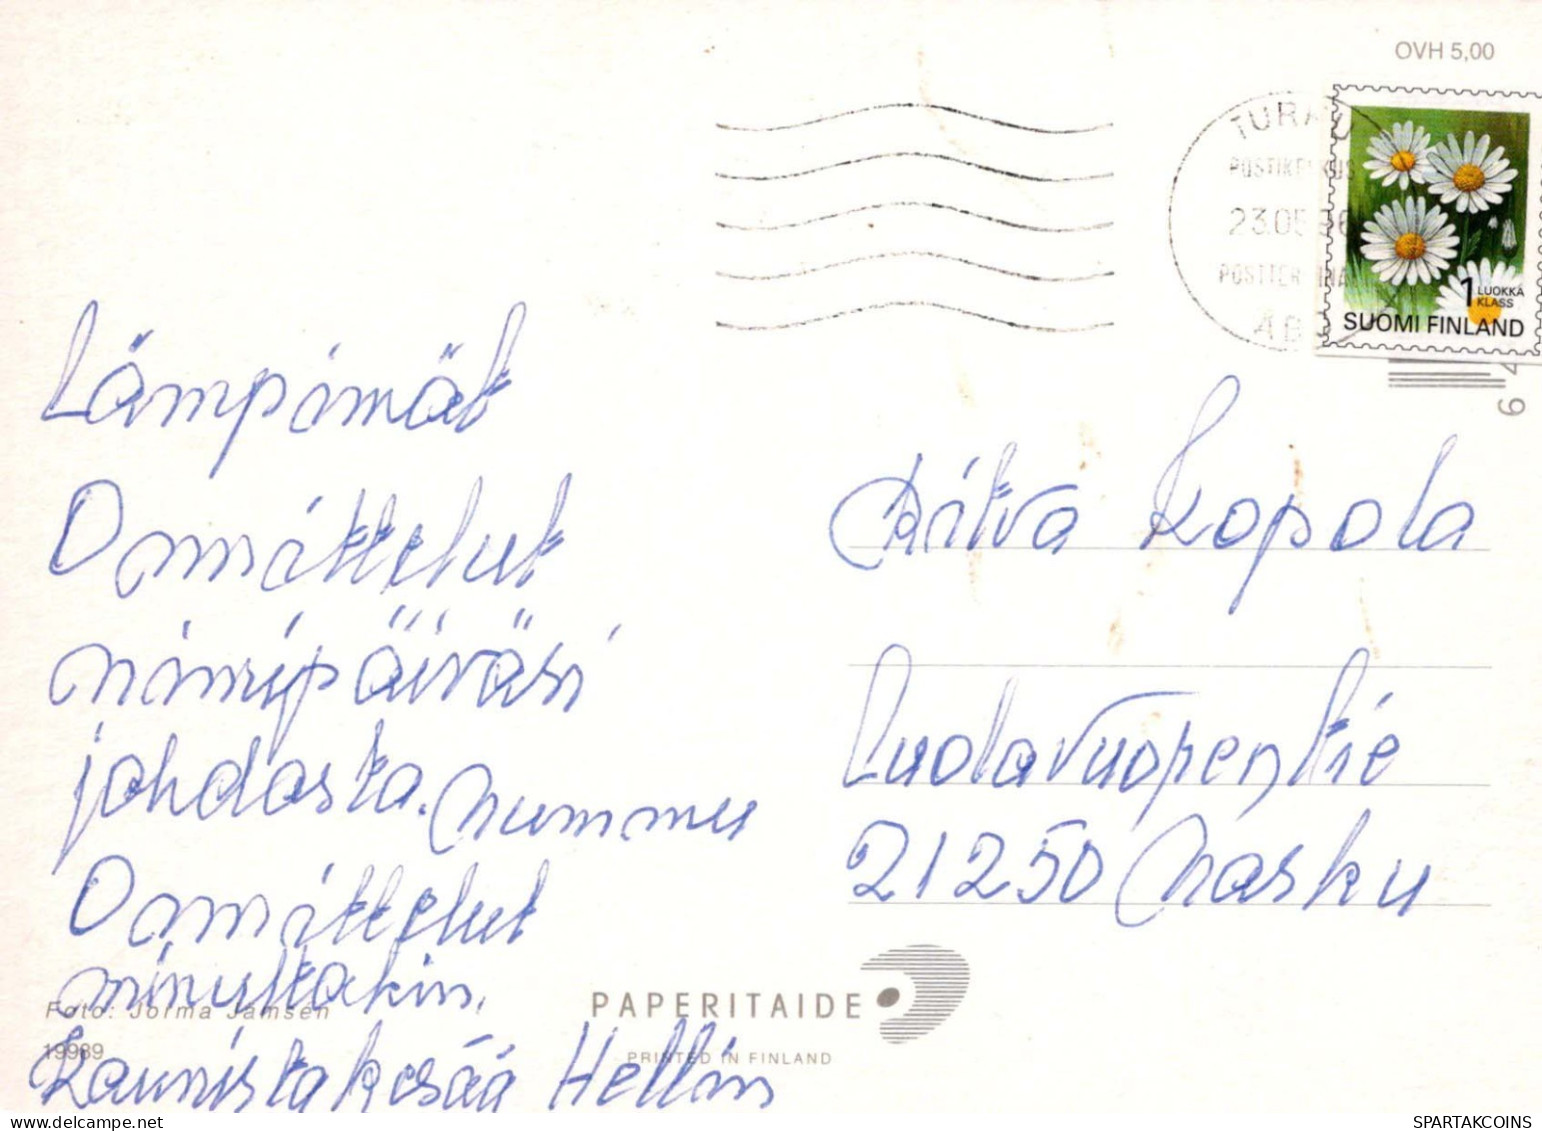 OVH 5,00
TURKU
POSTIKESKUS
23.05.96
POSTTERMINAL
ÅBO
1 LUOKKA
KLASS
SUOMI FINLAND
6
Lämpimät
Onnittelut
nimipäiväsi
johdosta. Nummu
Onnittelut
minultakin.
Kaunista kesää Hellin
Ritva Kopola
Luolavuorentie
21250 Masku
Foto: Jorma Jämsen
19989
PAPERITAIDE
PRINTED IN FINLAND
delcampe.net
SPARTAKCOINS